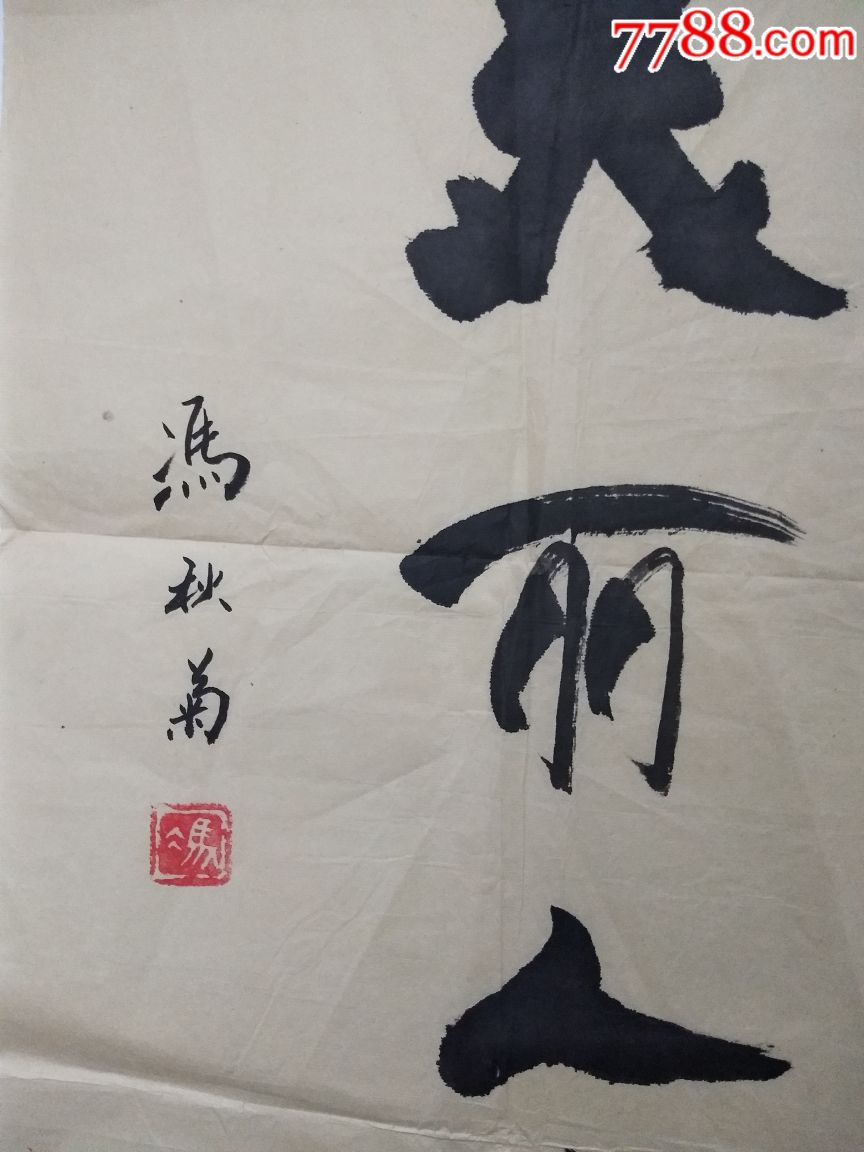 7788.com
丽人
馮秋菊
馮